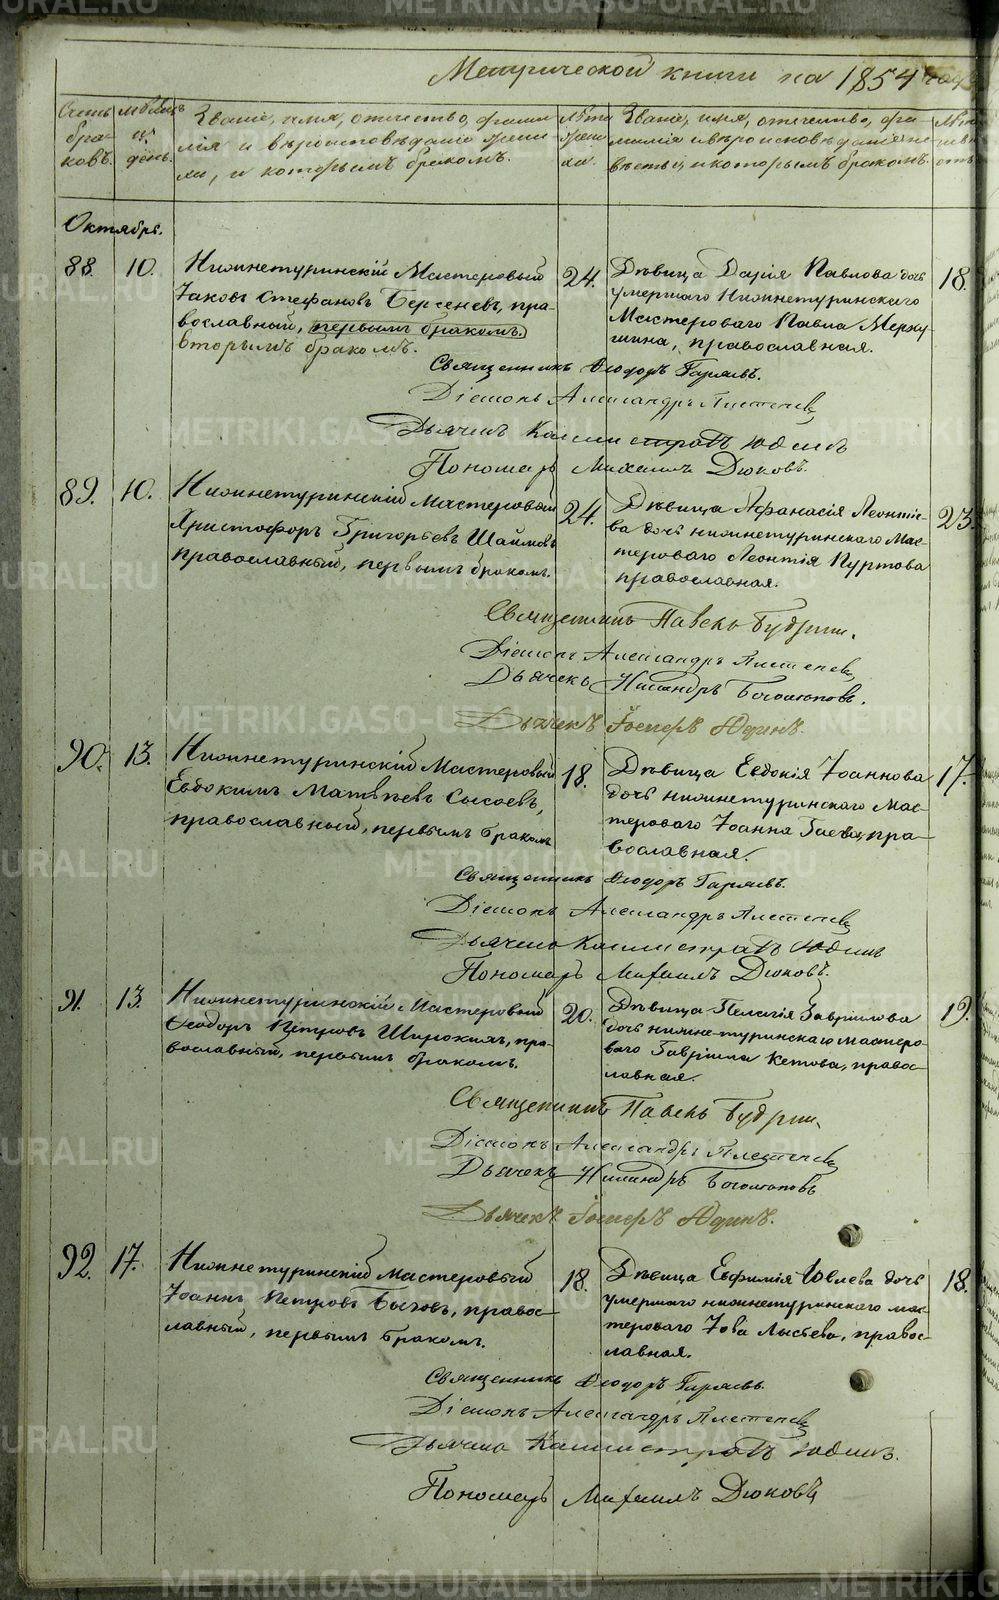 Метрической книги на 1854 годъ
Счетъ браковъ.
Мѣсяцъ и день.
Званіе, имя, отчество, фами-
лія и вѣроисповѣданіе жени-
ха, и которымъ бракомъ.
Лѣта жениха.
Званіе, имя, отчество, фа-
милія и вѣроисповѣданіе не-
вѣсты, и которымъ бракомъ.
Октябрь.
88. 10.
Нижнетуринскій Мастеровый
Іаковъ Стефановъ Берсеневъ, пра-
вославный, первымъ бракомъ.
вторымъ бракомъ.
24.
Дѣвица Дарія Павлова дочь
умершаго Нижнетуринскаго
Мастероваго Павла Мерку-
шина, православная.
18.
Священникъ Ѳеодоръ Гаряевъ.
Діаконъ Александръ
Дьячекъ Каллистратъ Юдинъ
Пономарь Михаилъ Дюковъ.
89. 10.
Нижнетуринскій Мастеровый
Христофоръ Григорьевъ Шаймовъ
православный, первымъ бракомъ.
24.
Дѣвица Афанасія Леонтіе-
ва дочь нижнетуринскаго Мас-
тероваго Леонтія Куртова
православная.
23.
Священникъ Павелъ Будринъ.
Діаконъ Александръ
Дьячекъ Никандръ Боголюбовъ.
Дьячекъ Іосифъ Юдинъ.
90. 13.
Нижнетуринскій Мастеровый
Евдокимъ Матвѣевъ Сысоевъ,
православный, первымъ бракомъ
18.
Дѣвица Евдокія Іоаннова
дочь нижнетуринскаго Мас-
тероваго Іоанна Гаева, пра-
вославная.
17.
Священникъ Ѳеодоръ Гаряевъ.
Діаконъ Александръ
Дьячекъ Каллистратъ Юдинъ
Пономарь Михаилъ Дюковъ.
91. 13
Нижнетуринскій Мастеровый
Ѳеодоръ Петровъ Широкихъ, пра-
вославный, первымъ бракомъ.
20.
Дѣвица Пелагія Гавріилова
дочь нижне-туринскаго мастеро-
ваго Гавріила Кетова, право-
славная.
19.
Священникъ Павелъ Будринъ.
Діаконъ Александръ
Дьячекъ Никандръ Боголюбовъ
Дьячекъ Іосифъ Юдинъ.
92. 17.
Нижнетуринскій мастеровый
Іоаннъ Петровъ Бычовъ, право-
славный, первымъ бракомъ.
18.
Дѣвица Евфимія Іовлева дочь
умершаго нижнетуринскаго мас-
тероваго Іова Лысьева, право-
славная.
18.
Священникъ Ѳеодоръ Гаряевъ.
Діаконъ Александръ
Дьячекъ Каллистратъ Юдинъ.
Пономарь Михаилъ Дюковъ
METRIKI.GASO-URAL.RU